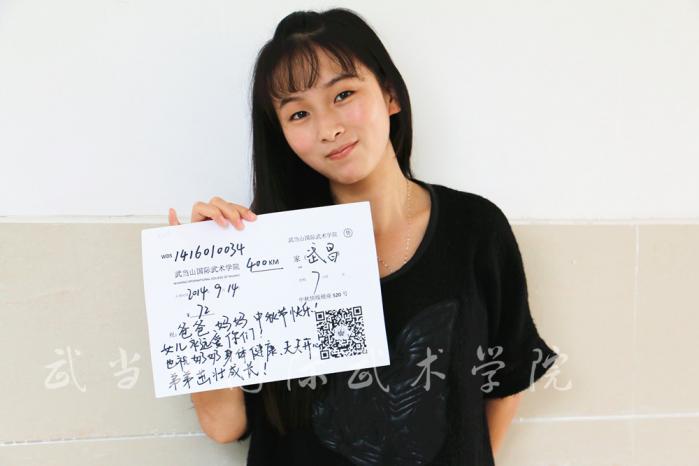 武当山国际武术学院
WDS 1416010034
武当山国际武术学院 400KM 家 武昌
2014 9.14 7
72 中秋快线候座 520 号
爸爸,妈妈,中秋节快乐!
女儿永远爱你们!
也祝奶奶身体健康、天天开心
弟弟茁壮成长!
武当 际武术学院